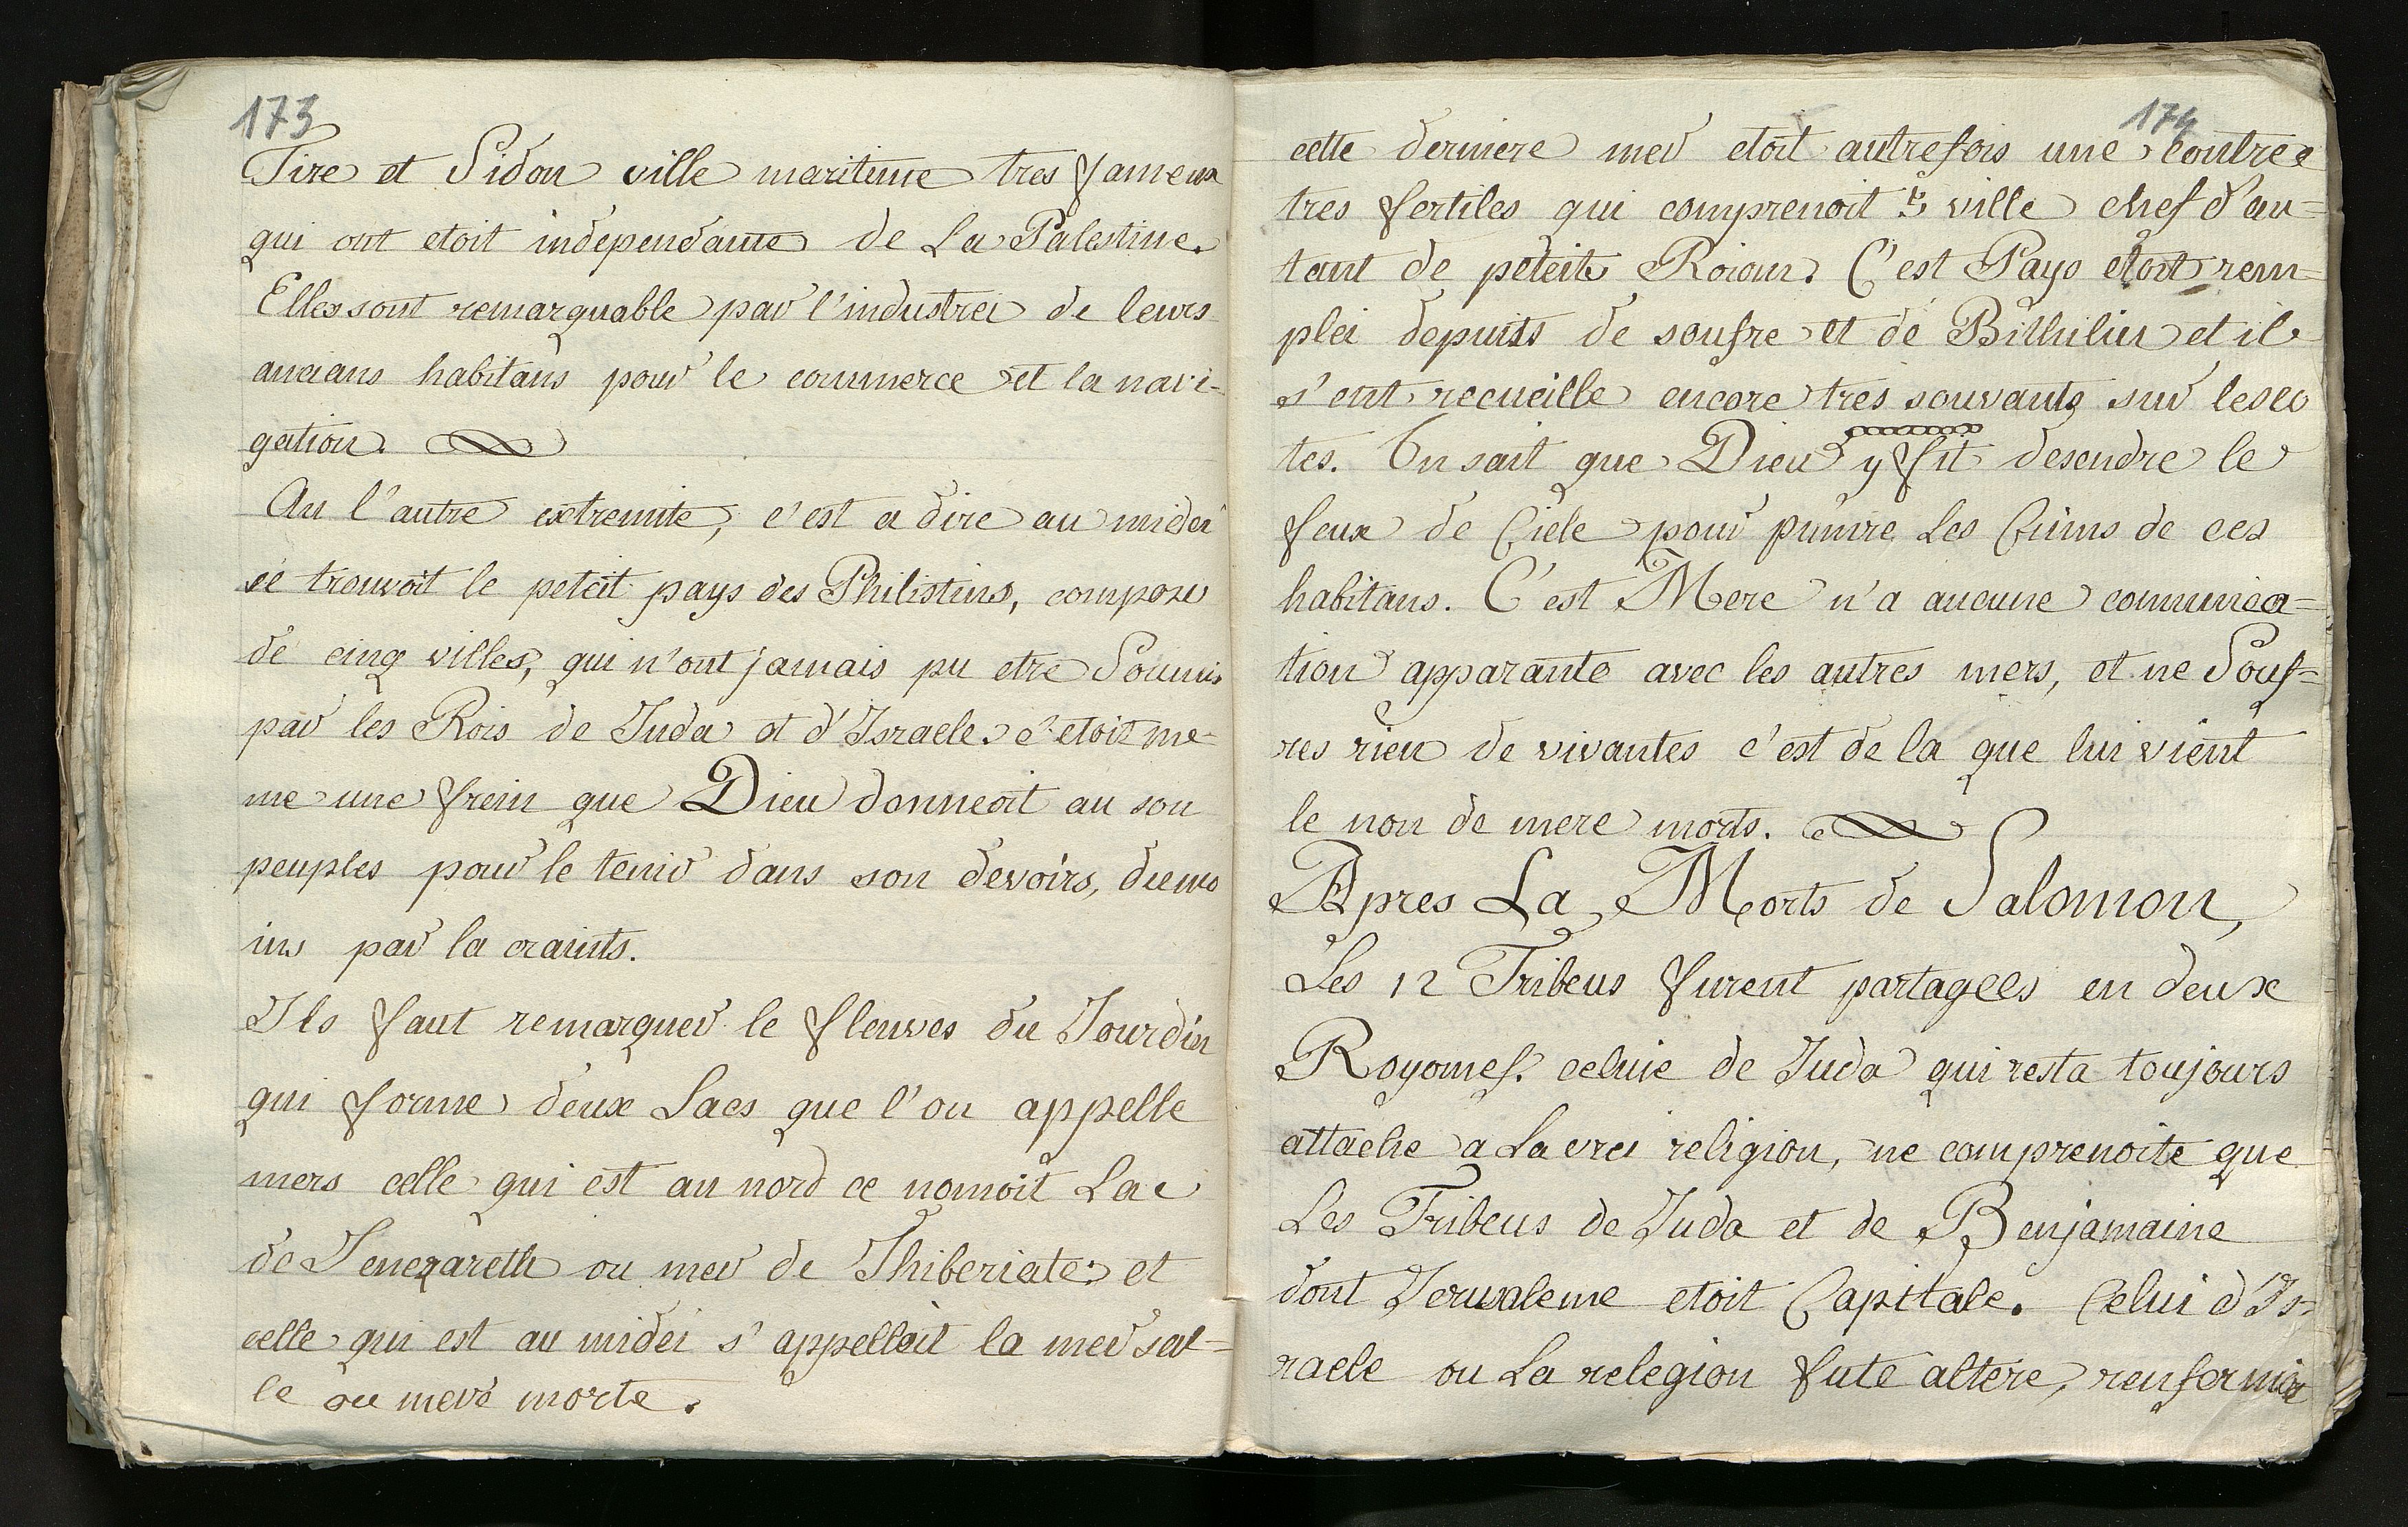 173
Tire et Sidon ville maritime tres fameux
qui ont etoit independante de La Palestine.
Elles sont remarquable par l'industrei de leurs
ancians habitans pour le commerce et la navi-
gation.
Au l'autre extremite, c'est a dire au midei
se trouvoit le peteit pays des Philistins, compose
de cinq villes, qui n'ont jamais pu etre Soumis
par les Rois de Juda et d'Israele. c'etoit me-
me une frein que Dieu donneoit au son
peuples pour le tenir dans son devoirs, du mo
ins par la craints.
Ils faut remarquer le fleuves du Jourdin
qui forme deux Lacs que l'on appelle
mers celle qui est au nord ce nomoit Lac
de Jenezareth ou mer de Thiberiate: et
celle qui est au midei s'appelloit la mer sal-
le ou mere morte.
174
cette derniere mer etoit autrefois une contree
tres fertiles qui comprenoit 5 ville chef d'au-
tant de peteits Roioum. C'est Pays etoit rem-
plei depuits de soufre et de Bithilin et il
s'ent recueille encore tres souvants sur les co
tes. On sait que Dieu y fit desendre le
feux de Ciele pour punire Les Crims de ces
habitans. C'est Mere n'a aucune communica-
tion apparante avec les autres mers, et ne Souf-
res rien de vivantes c'est de la que lui vient
le non de mere morts.
Apres La Morts de Salomon,
Les 12 Tribeus furent partagees en deux
Royomes. celuie de Juda qui resta toujours
attache a La vrei religion, ne comprenoite que
Les Tribeus de Juda et de Benjamaine
dont Jerusaleme etoit Capitale. Celui d'Is-
raele ou La relegion fute altere, renfermoit